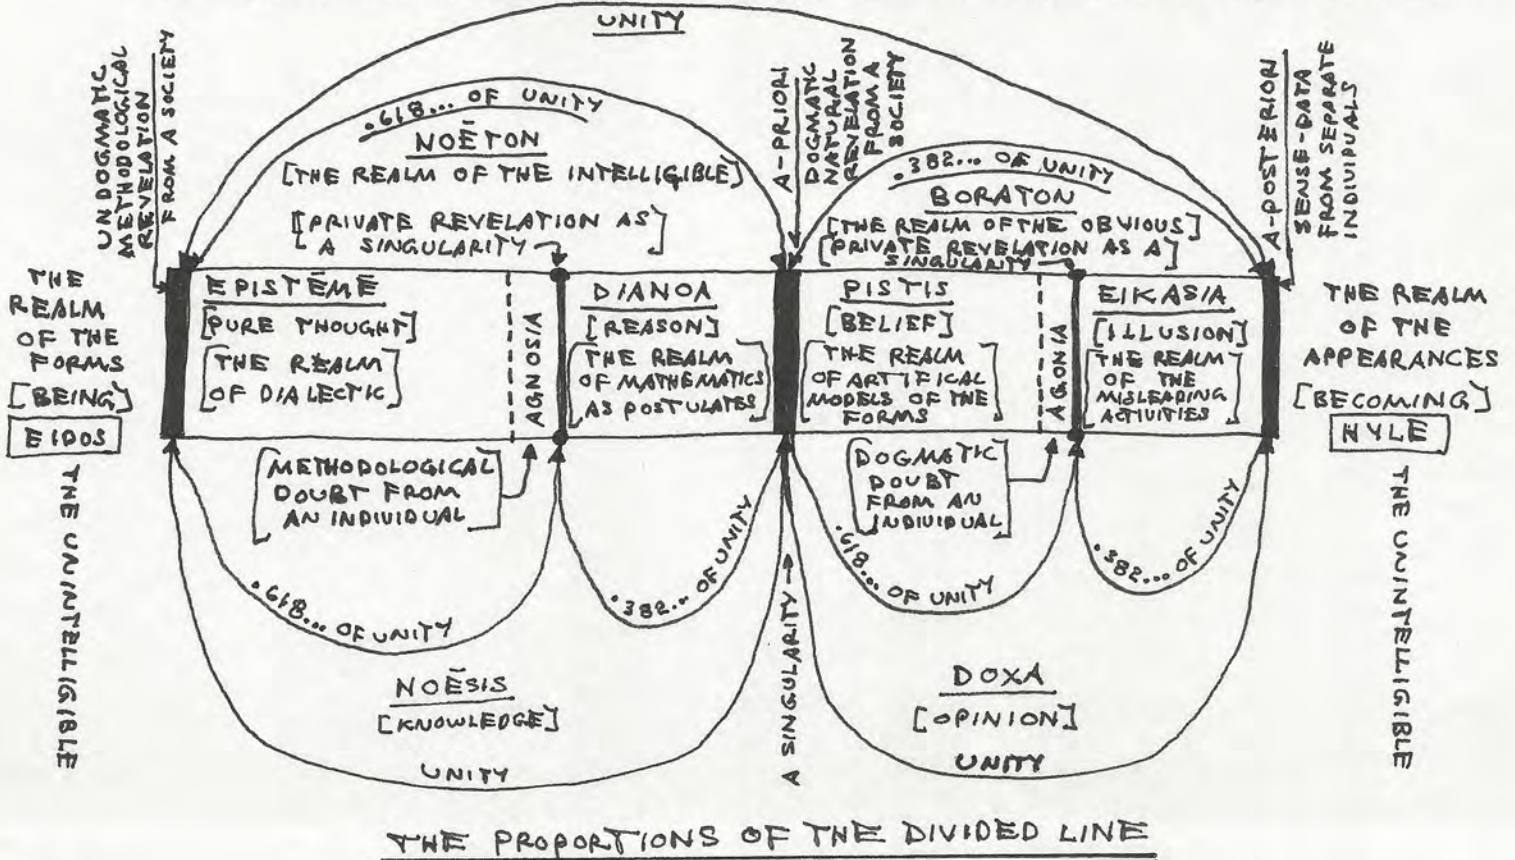 UNITY
UNDOGMATIC
METHODOLOGICAL
REVELATION
FROM A SOCIETY
.618... OF UNITY
NOĒTON
[THE REALM OF THE INTELLIGIBLE]
[PRIVATE REVELATION AS
A SINGULARITY]
A-PRIORI
DOGMATIC
NATURAL
REVELATION
FROM A
SOCIETY
.382... OF UNITY
BORATON
[THE REALM OF THE OBVIOUS]
[PRIVATE REVELATION AS A
SINGULARITY]
A-POSTERIORI
SENSE-DATA
FROM SEPARATE
INDIVIDUALS
THE
REALM
OF THE
FORMS
[BEING]
EIDOS
THE UNINTELLIGIBLE
EPISTĒMĒ
[PURE THOUGHT]
[THE REALM
OF DIALECTIC]
AGNOSIA
DIANOA
[REASON]
[THE REALM
OF MATHEMATICS
AS POSTULATES]
PISTIS
[BELIEF]
[THE REALM
OF ARTIFICAL
MODELS OF THE
FORMS]
AGONIA
EIKASIA
[ILLUSION]
[THE REALM
OF THE
MISLEADING
ACTIVITIES]
THE REALM
OF THE
APPEARANCES
[BECOMING]
HYLE
THE UNINTELLIGIBLE
[METHODOLOGICAL
DOUBT FROM
AN INDIVIDUAL]
[DOGMATIC
DOUBT
FROM AN
INDIVIDUAL]
.618... OF UNITY
.382... OF UNITY
A SINGULARITY
.618... OF UNITY
.382... OF UNITY
NOĒSIS
[KNOWLEDGE]
UNITY
DOXA
[OPINION]
UNITY
THE PROPORTIONS OF THE DIVIDED LINE